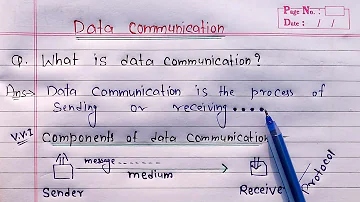 Page No.:
Date: / /
Data Communication
Q. What is data communication?
Ans→ Data Communication is the process of
Sending or receiving ....
V.V.I Components of data Communication
message -------
medium
Sender
Receive
Protocol